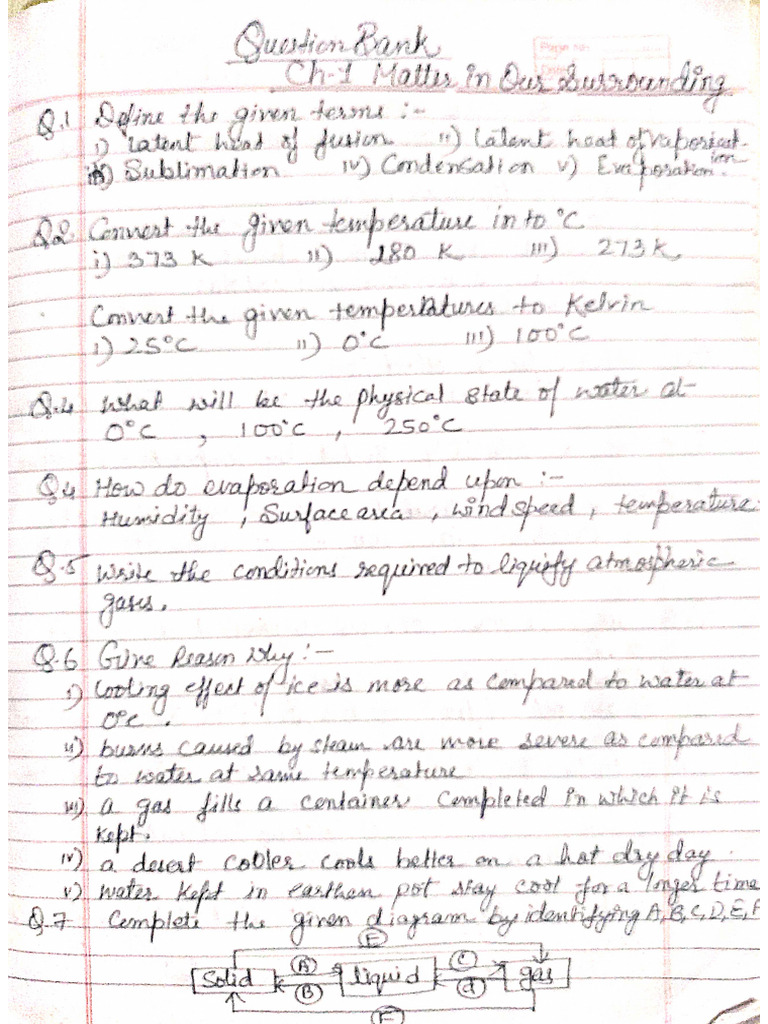 Question Bank
Page no:
Ch-1 Matter in Our Surrounding
Q.1 Define the given terms :-
i) latent heat of fusion ii) latent heat of vaporizat-
ion
iii) Sublimation iv) Condensation v) Evaporation.
Q2 Convert the given temperature in to °C
i) 373 K ii) 280 K iii) 273 K
Convert the given temperatures to Kelvin
i) 25°C ii) 0°C iii) 100°C
Q.4 What will be the physical state of water at-
0°C , 100°C , 250°C
Q4 How do evaporation depend upon :-
Humidity , Surface area , wind speed , temperature
Q.5 Write the conditions required to liquify atmospheric
gases.
Q.6 Give Reason Why :-
i) Cooling effect of ice is more as compared to water at
0°C .
ii) burns caused by steam are more severe as compared
to water at same temperature
iii) a gas fills a container completed in which it is
kept.
iv) a desert cooler cools better on a hot dry day .
v) water kept in earthen pot stay cool for a longer time
Q.7 Complete the given diagram by identifying A, B, C, D, E, F
E
Solid A liquid C gas
B d
F